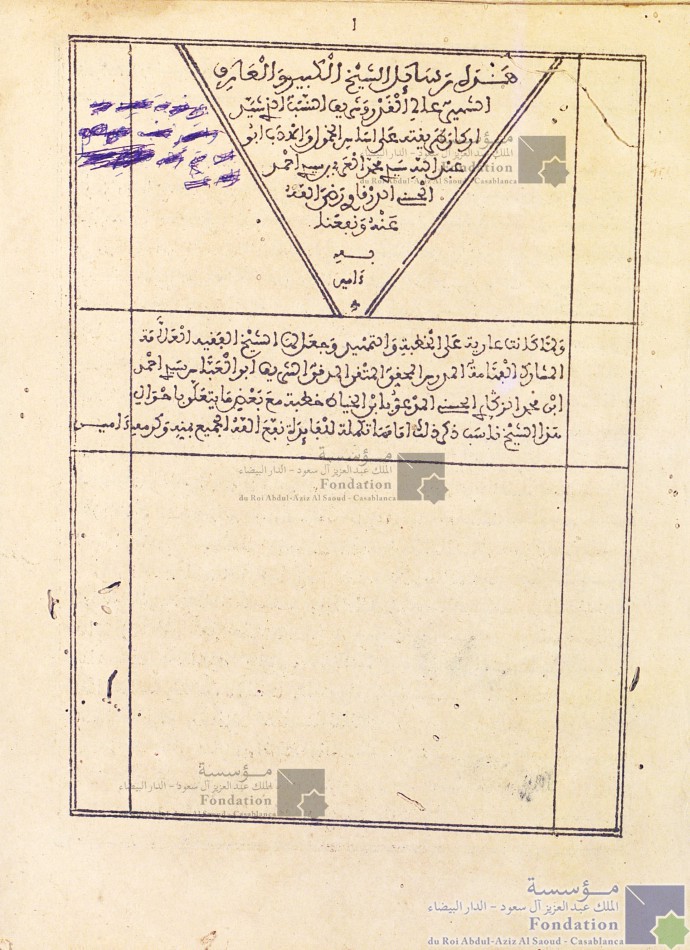 1
هذه رسائل الشيخ الكبير والعارف
الشهير عالي القدر وشريف النسب الذي شيد
اركان طريقته على اساس الخمول والادب ابو
عبد الله سيدي محمد العربي بن سيدي احمد
الحسني الدرقاوي رضي الله
عنه ونفعنا
به
ءامين
ولما كانت عارية على الخطبة والتمهيد وجعل لها الشيخ الفقيه العلامة
المشارك الفهامة المدرس المحقق المتقن المدقق الشريف ابو العباس سيدي احمد
ابن محمد الزكاري الحسني المدعو بابن الخياط خطبة مع بعض ما يتعلق باحوال
هذا الشيخ ناسب ذكر ذلك امامها تكملة للفايدة نفع الله الجميع بمنه وكرمه ءاميس
مؤسسة
الملك عبد العزيز آل سعود - الدار البيضاء
Fondation
du Roi Abdul-Aziz Al Saoud - Casablanca
مؤسسة
الملك عبد العزيز آل سعود - الدار البيضاء
Fondation
du Roi Abdul-Aziz Al Saoud - Casablanca
مؤسسة
الملك عبد العزيز آل سعود - الدار البيضاء
Fondation
du Roi Abdul-Aziz Al Saoud - Casablanca
مؤسسة
الملك عبد العزيز آل سعود - الدار البيضاء
Fondation
du Roi Abdul-Aziz Al Saoud - Casablanca